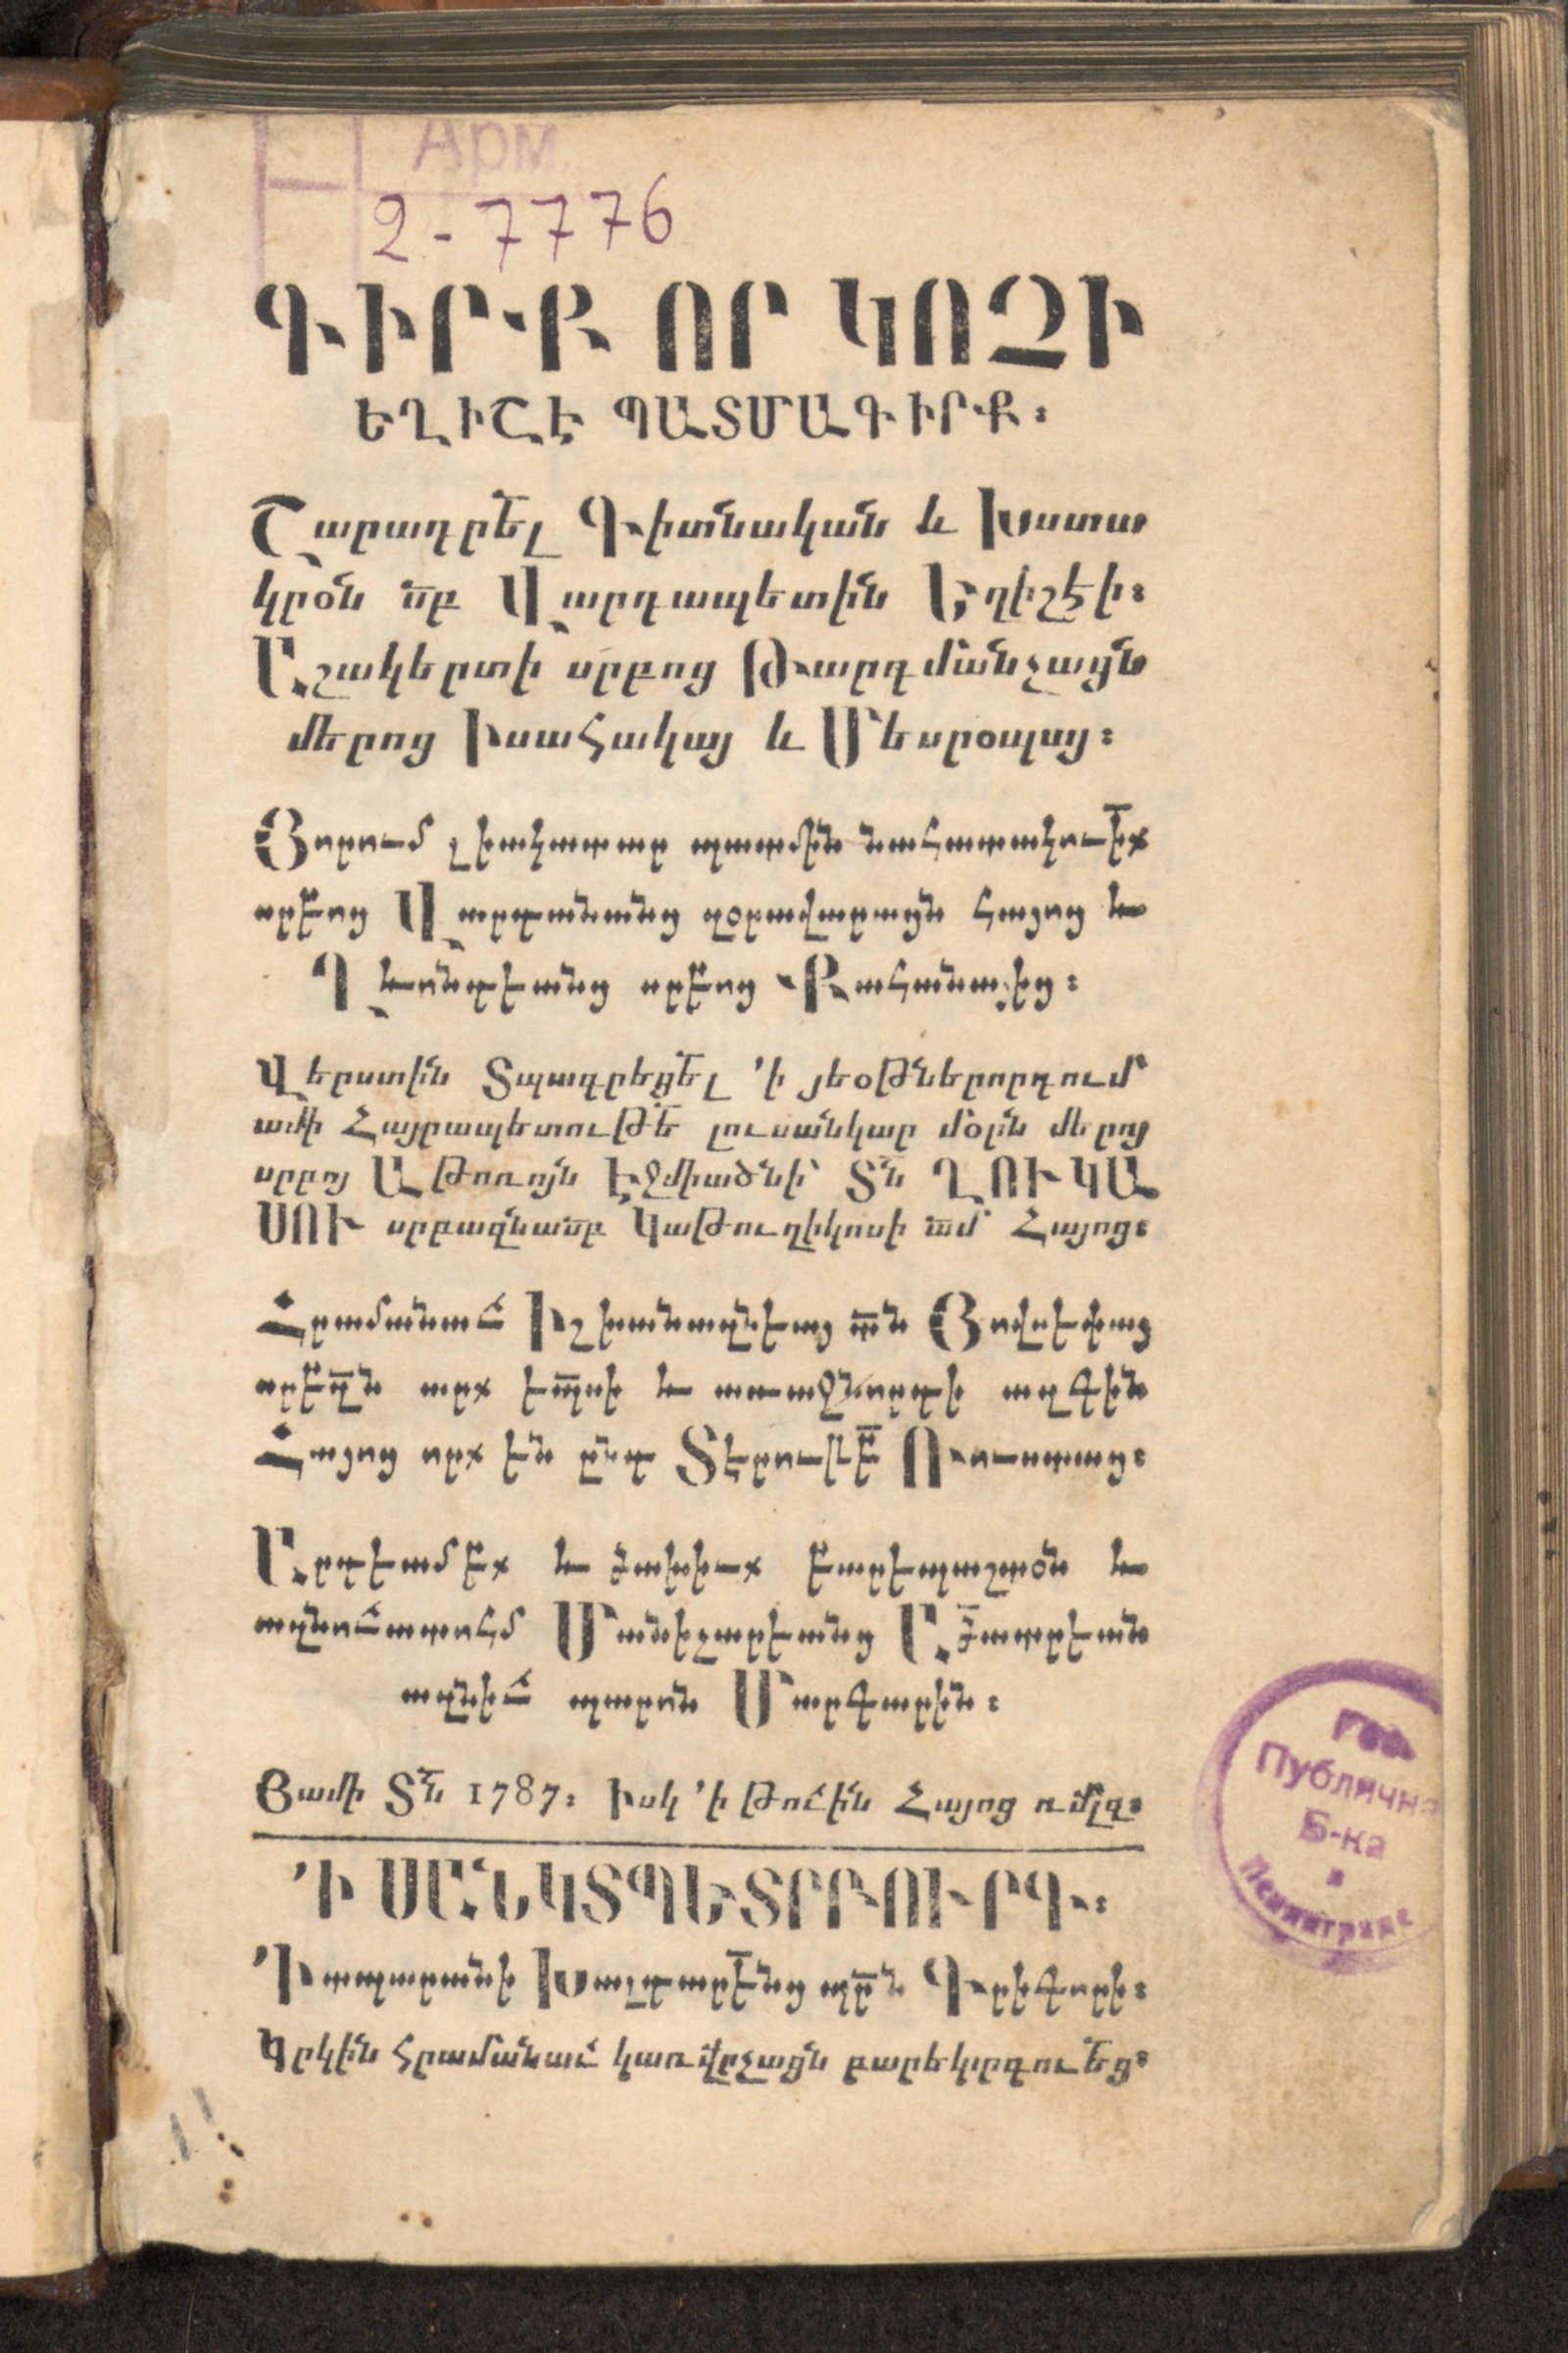 Арм.
2-7776
ԳԻՐՔ ՈՐ ԿՈՉԻ
ԵՂԻՇԷ ՊԱՏՄԱԳԻՐՔ։
Շարադրե՟լ Գիտնական և Խստա
կրօն ս՟բ Վարդապետին Եղիշէի։
Աշակերտի սրբոց Թարդմանչացն
մերոց Իսահակայ և Մեսրօպայ։
Յորում լիակատար պատմին նահատակութի՟ք
սրբոց Վարդանանց զօրավարացն հայոց և
Ղևոնդեանց սրբոց Քահանայից։
Վերստին Տպագրեցե՟լ ՚ի յեօթներորդում
ամի Հայրապետութե՟ լուսանկար մօլն մերոյ
սրբոյ Աթոռոյն Էջմիածնի՝ Տն՟ ՂՈՒԿԱ
ՍՈՒ սրբազնաս՟բ Կաթուղիկոսի ա՟մ Հայոց։
Հրամանաւ Իշխանազնեայ տ՟ն Յովսէփայ
սրբզ՟ն արք եպ՟սի և առաջնորդի ազգին
Հայոց որք են ընդ Տէրութ՟բ Ռուսաց։
Արդեամբք և ծախիւք բարեպաշտօն և
ազնուատոհմ Մանիչարեանց Աստ՟ծատրեան
ազնիւ պարոն Մարգարին։
Յամի Տն՟ 1787։ իսկ ՚ի թուին Հայոց ռմլզ։
՚Ի ՍԱՆԿՏՊԵՏՐԲՈՒՐԳ։
՚Ի տպարանի Խալդարե՟նց պր՟ն Գրիգորի։
Կրկին հրամանաւ կառվրչացն բարեկրգութե՟ց։
Гос.
Публична
Б-ка
в
Ленинграде